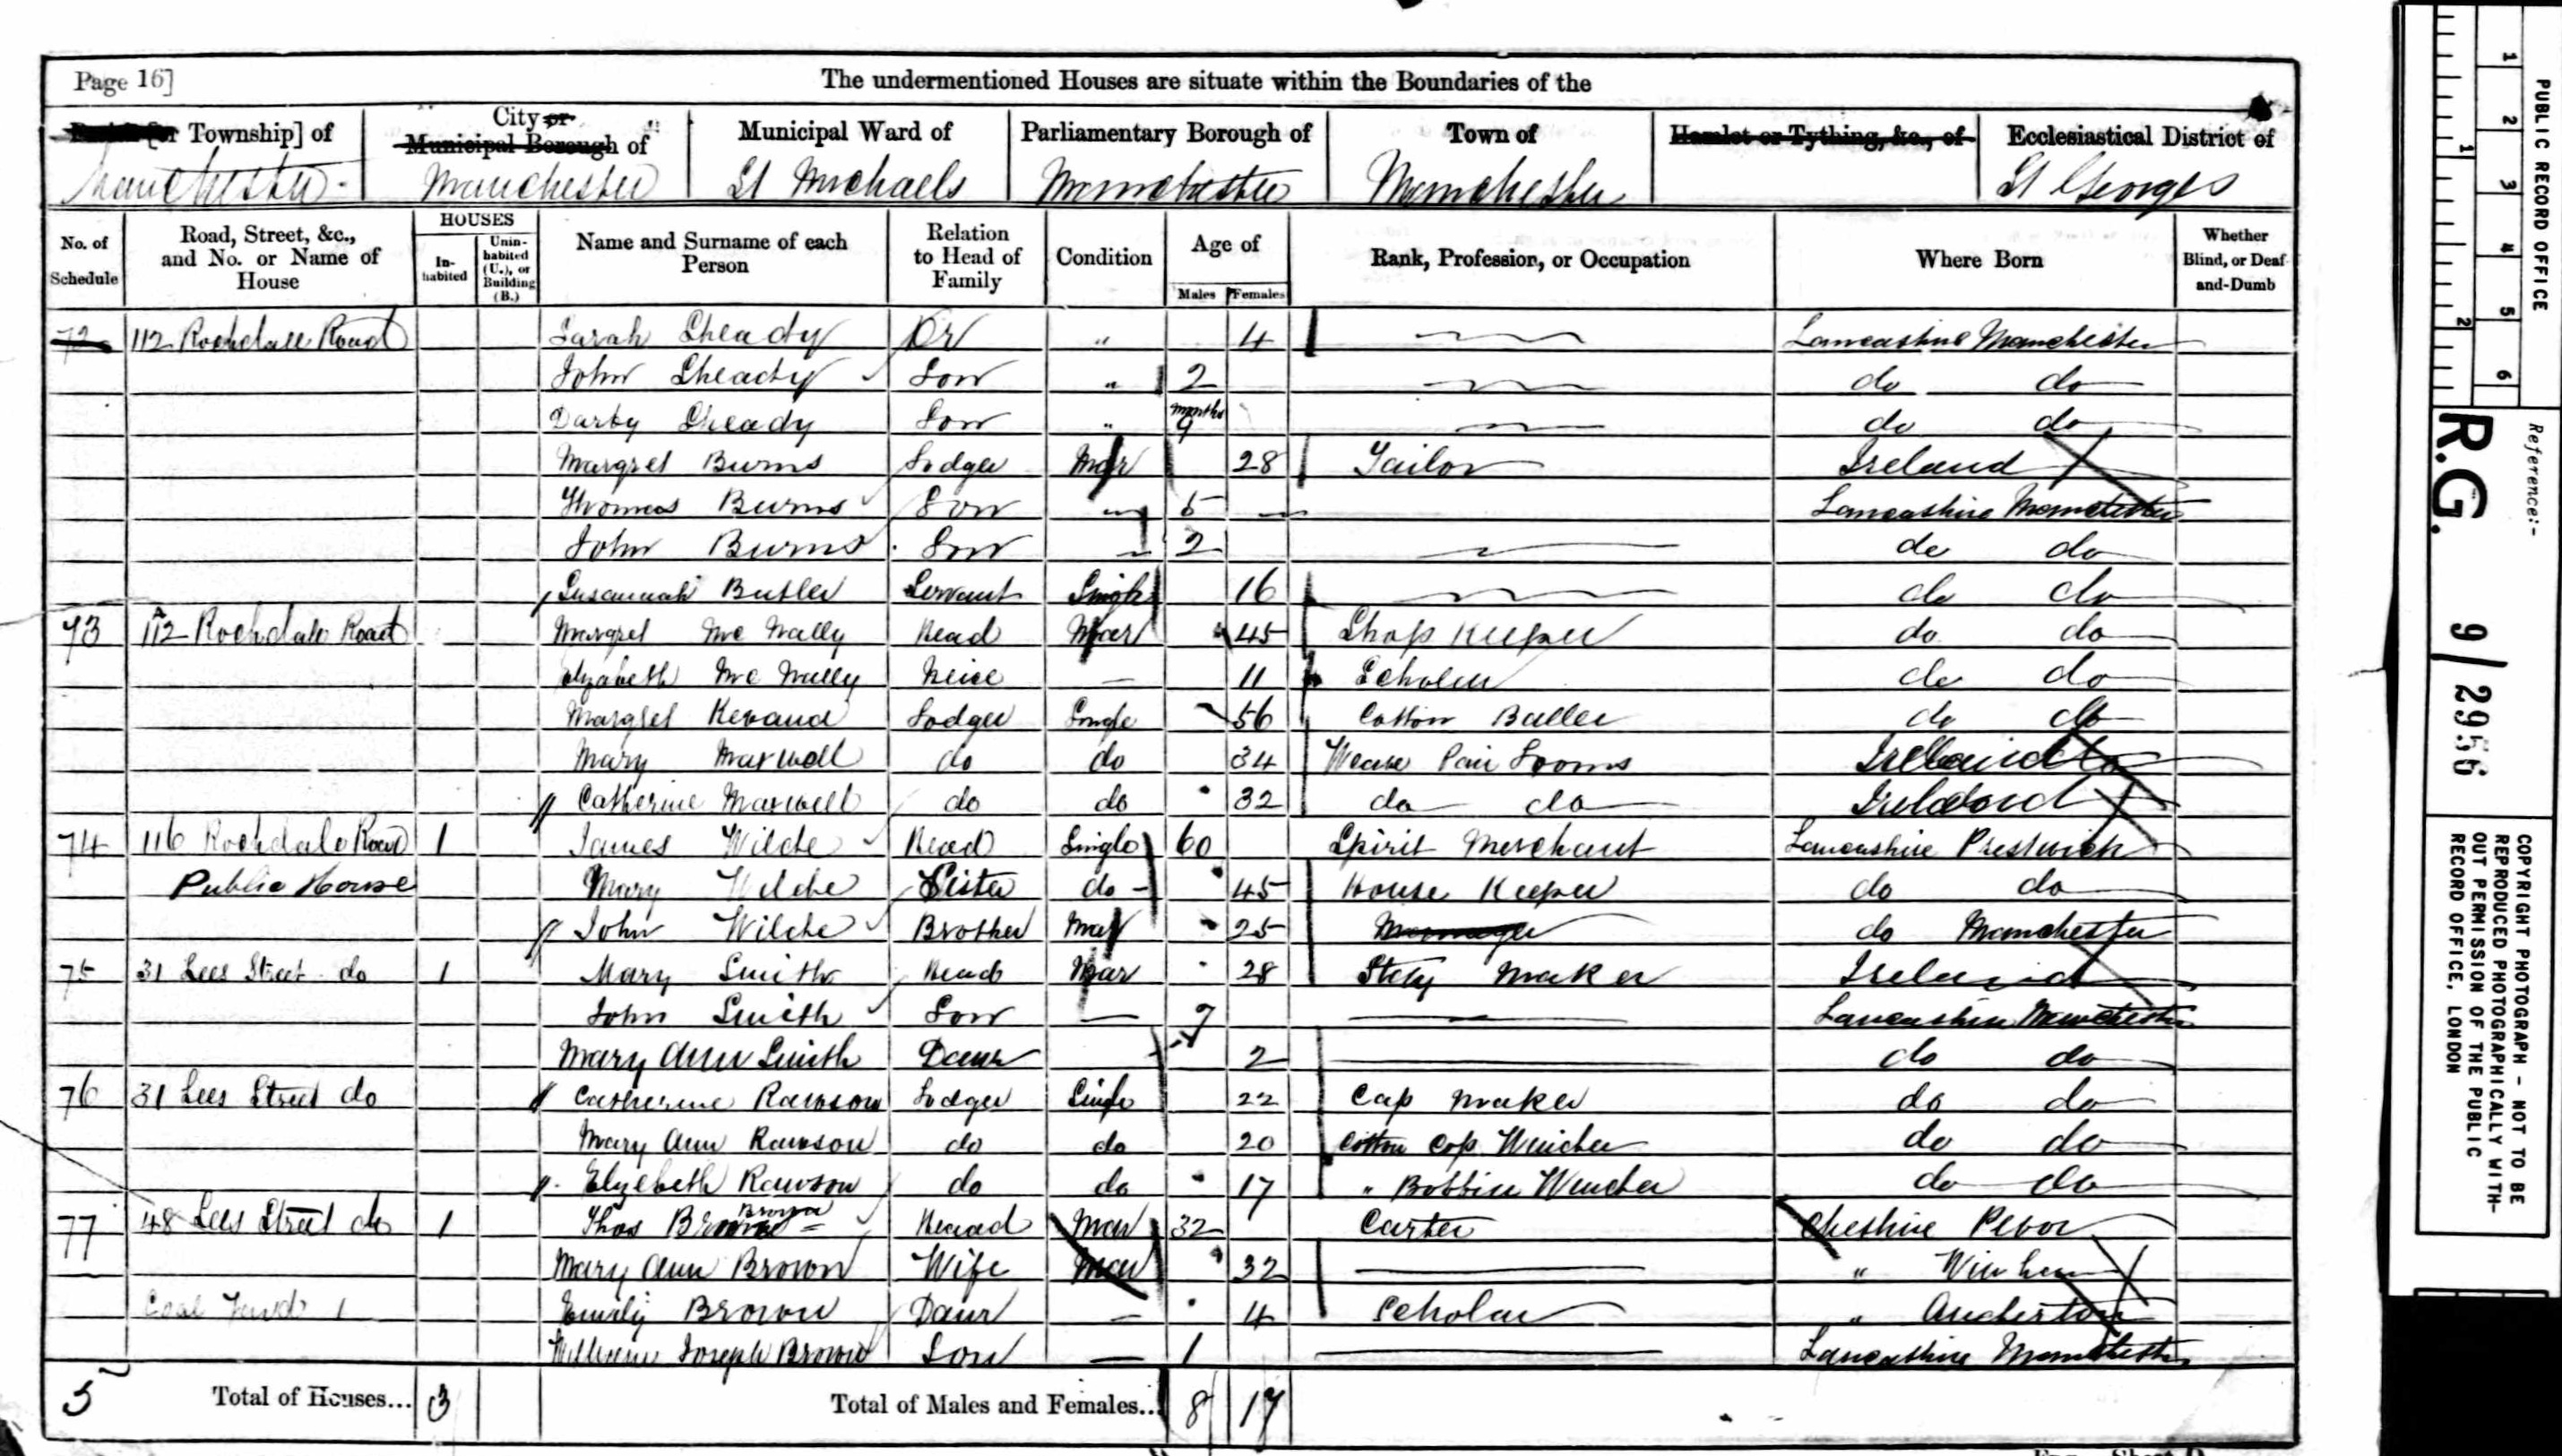 Page 16]
The undermentioned Houses are situate within the Boundaries of the
Township] of
Manchester
City or Municipal Borough of
Manchester
Municipal Ward of
St Michaels
Parliamentary Borough of
Manchester
Town of
Manchester
Hamlet or Tything, &c., of
Ecclesiastical District of
St Georges
No. of Schedule
Road, Street, &c., and No. or Name of House
HOUSES
In-habited
Unin-habited (U.), or Building (B.)
Name and Surname of each Person
Relation to Head of Family
Condition
Age of
Males
Females
Rank, Profession, or Occupation
Where Born
Whether Blind, or Deaf-and-Dumb
72 112 Rochdale Road Sarah Sheady Dr " 4 Lancashire Manchester
John Sheady Son " 2 do do
Darby Sheady Son " months 9 do do
Margret Burns Lodger Mar 28 Tailor Ireland
Thomas Burns Son " 5 Lancashire Manchester
John Burns Son 2 do do
Susannah Butler Servant Single 16 do do
73 112 A Rochdale Road Margret Mc Nally Head Mar 45 Shop Keeper do do
Elizabeth Mc Nally Neice 11 Scholar do do
Margret Lodger Single 56 Cotton do do
Mary Maxwell do do 34 Looms Ireland
Catherine Maxwell do do 32 do do Ireland
74 116 Rochdale Road 1 James Wilde Head Single 60 Spirit Merchant Lancashire Prestwich
Public House Mary Wilde Sister do 45 House Keeper do do
John Wilde Brother Mar 25 Manager do Manchester
75 31 Lees Street do 1 Mary Smith Head Mar 28 Stay Maker Ireland
John Smith Son 7 Lancashire Manchester
Mary Ann Smith Daur 2 do do
76 31 Lees Street do Catherine Rawson Lodger Single 22 Cap Maker do do
Mary Ann Rawson do do 20 Cotton Cop Winder do do
Elizebeth Rawson do do 17 " Bobbin Winder do do
77 48 Lees Street do 1 Thos Brown Head Mar 32 Carter Cheshire
Mary Ann Brown Wife Mar 32 "
Emily Brown Daur 4 Scholar " Anderton
William Joseph Brown Son 1 Lancashire Manchester
5 Total of Houses... 3 Total of Males and Females... 8 17
PUBLIC RECORD OFFICE
1 2 3 4 5 6
1 2
Reference:-
R.G. 9/2956
COPYRIGHT PHOTOGRAPH - NOT TO BE
REPRODUCED PHOTOGRAPHICALLY WITH-
OUT PERMISSION OF THE PUBLIC
RECORD OFFICE, LONDON